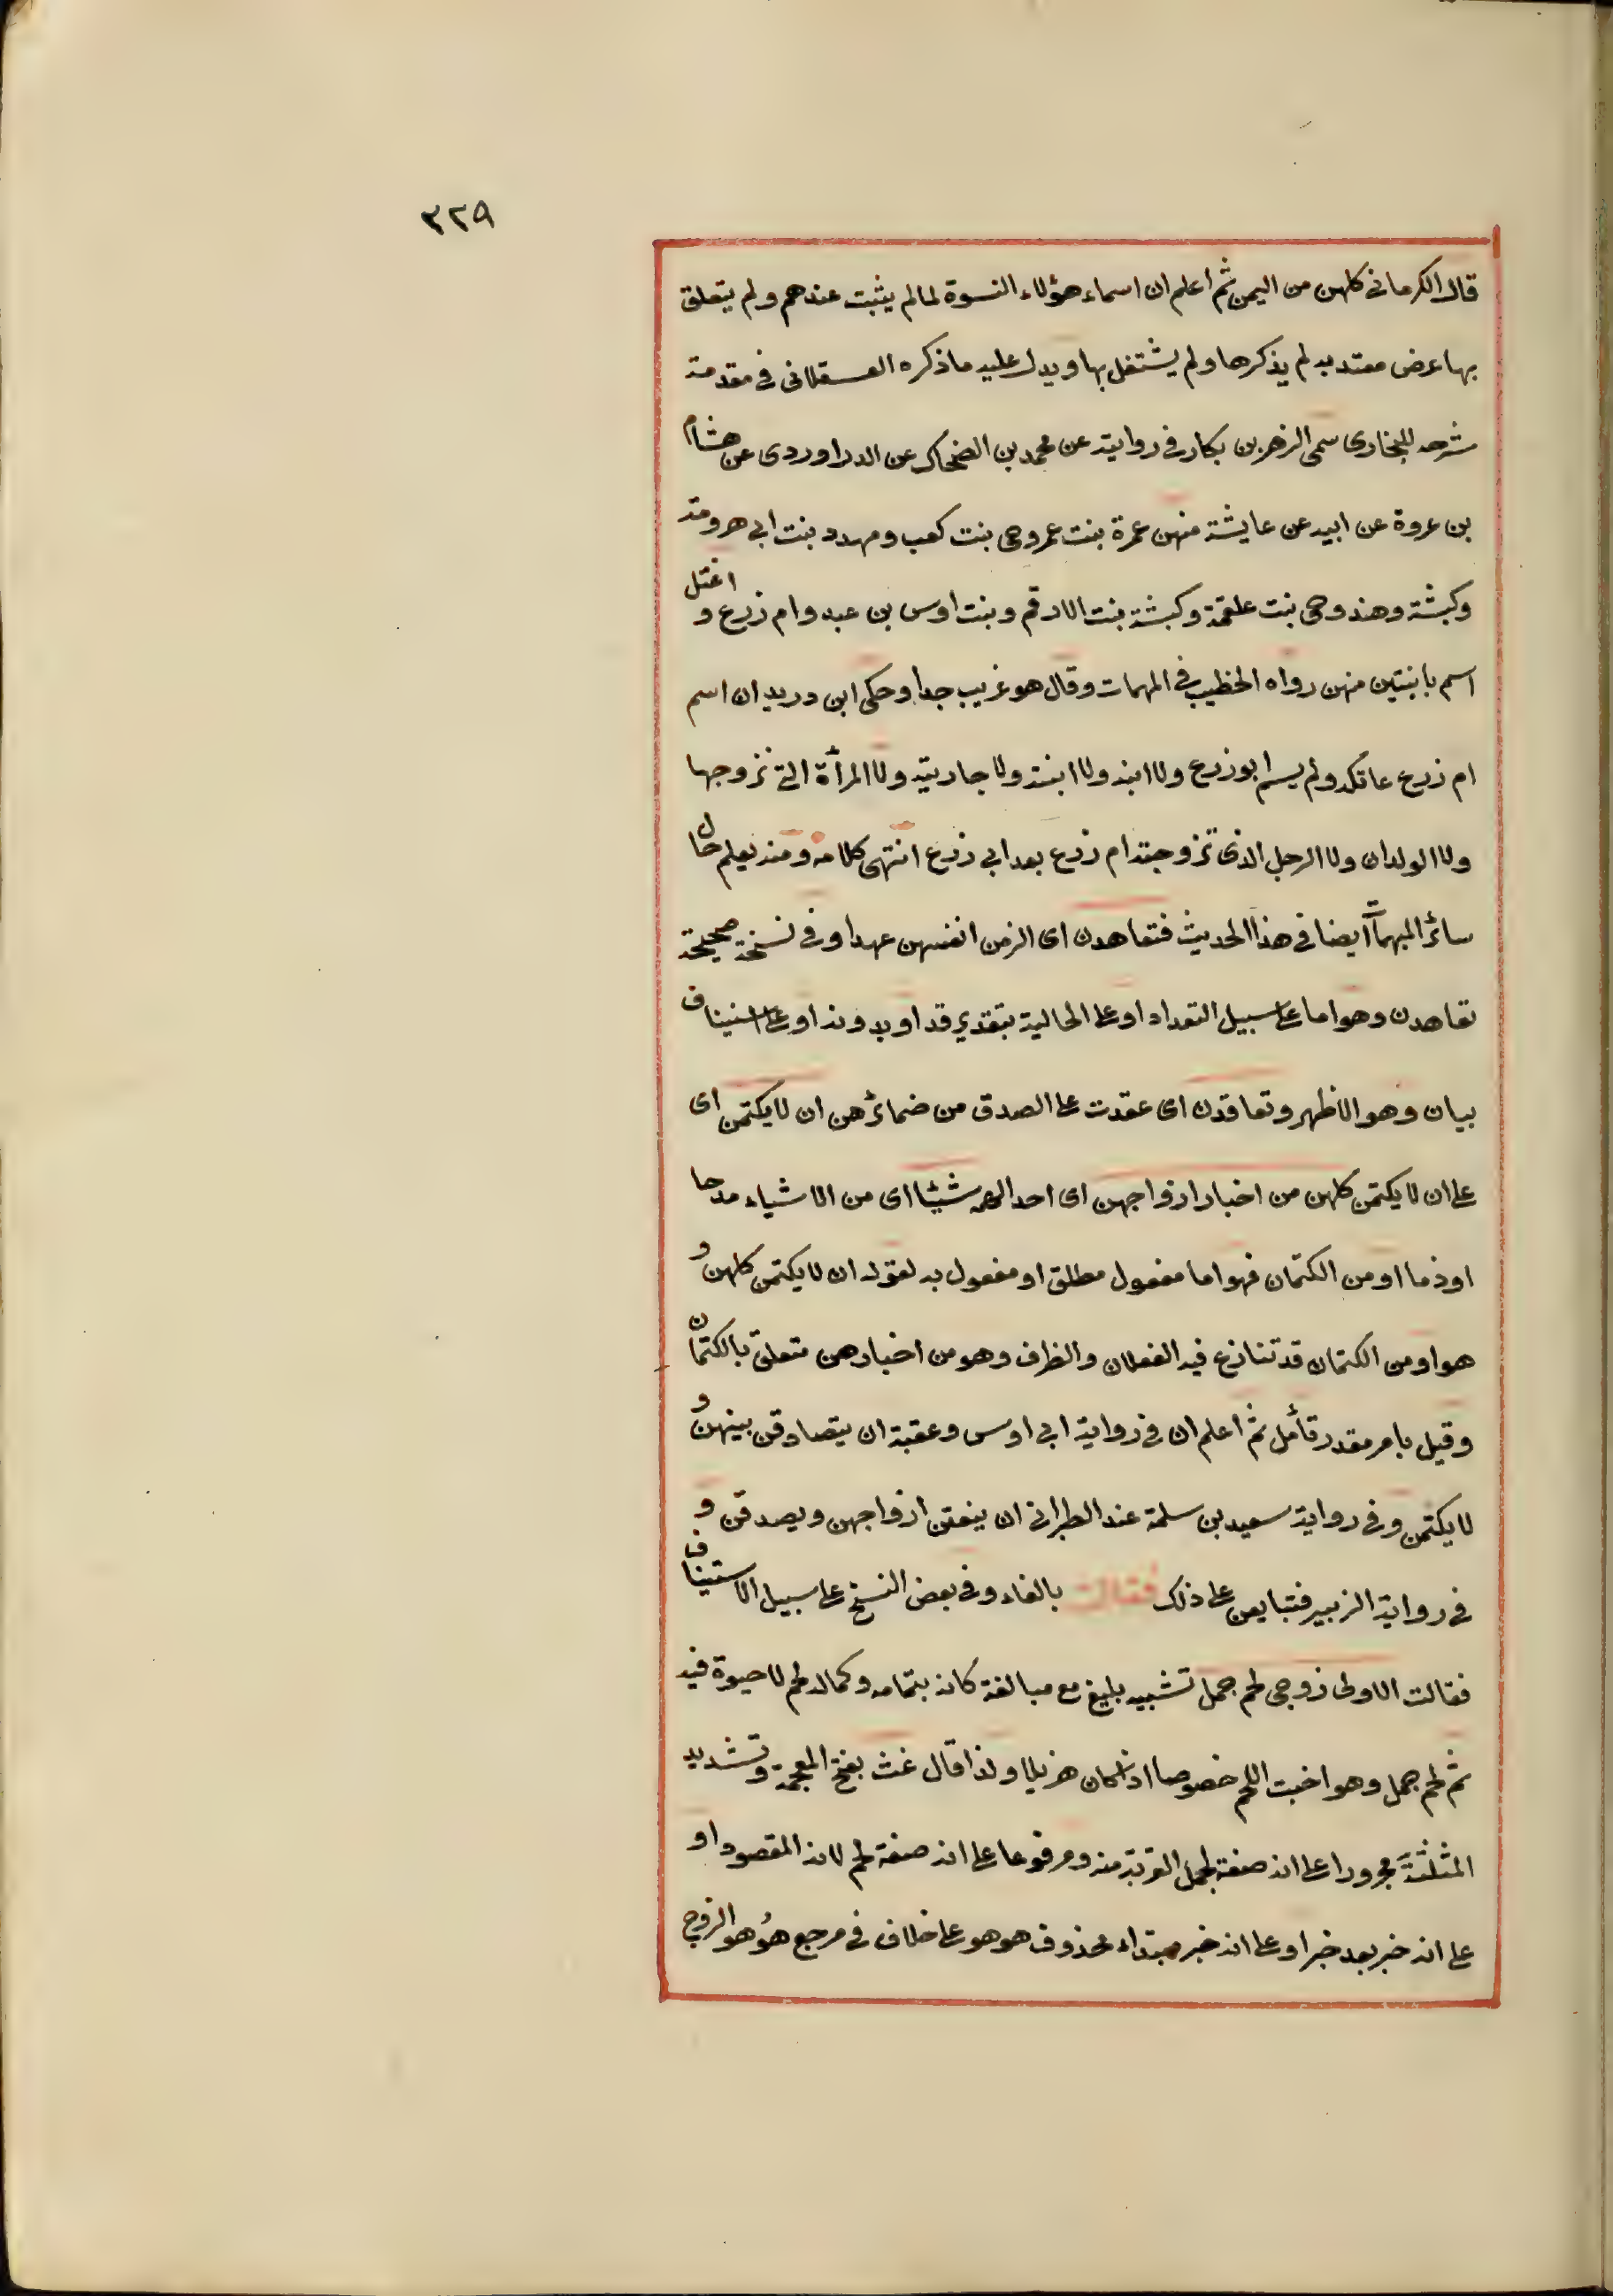 ٣٢٩
قال الكرمانى كلهن من اليمن ثم اعلم ان اسماء هؤلاء النسوة لما لم يثبت عندهم ولم يتعلق
بها غرض معتد به لم يذكرها ولم يشتغل بها ويدل عليه ما ذكره العسقلانى فى مقدمة
شرحه للبخارى سمى الزهر بن بكار فى رواية عن محمد بن الضحاك عن الدراوردى عن هشام
بن عروة عن ابيه عن عايشة منهن عمرة بنت عمرو حى بنت كعب ومهدد بنت ابى هرومة
وكبشة وهند وحى بنت علقمة وكبشة بنت الارقم وبنت اوس بن عبد وام زرع و اغفل
اسم باثنتين منهن رواه الخطيب فى المهمات وقال هو غريب جدا وحكى ابن دريد ان اسم
ام زرع عاتكه ولم يسم ابو زرع ولا ابنه ولا ابنته ولا جاريته ولا المرأة التى تزوجها
ولا الولدان ولا الرجل الذى تزوجته ام زرع بعد ابى زرع انتهى كلامه ومنه يعلم حال
سائر المبهمات ايضا فى هذا الحديث فتعاهدن اى الزمن انفسهن عهدا وفى نسخة صحيحة
تعاهدن وهو اما على سبيل التعداد او على الحالية بتقدير قد او بدونه او على استيناف
بيان وهو الاظهر وتعاقدن اى عقدت على الصدق من ضمائرهن ان لا يكتمن اى
على ان لا يكتمن كلهن من اخبار ازواجهن اى احوالهم شيئا اى من الاشياء مدحا
او ذما او من الكتمان فهو اما مفعول مطلق او مفعول به لقوله ان لا يكتمن كلهن و
هو او من الكتمان قد تنازع فيه الفعلان والظرف وهو من اخبارهن متعلق بالكتمان
وقيل بامر مقدر فتأمل ثم اعلم ان فى رواية ابى اوس وعقبة ان يتصادقن بينهن و
لا يكتمن وفى رواية سعيد بن سلمة عند الطبرانى ان ينعتن ازواجهن ويصدقن و
فى رواية الزبير فتبايعن على ذلك فقالت بالفاء وفى بعض النسخ على سبيل الاستيناف
فقالت الاولى زوجى لحم جمل تشبيه بليغ مع مبالغة كانه بتمامه وكماله لحم لا حيوة فيه
ثم لحم جمل وهو اخبث اللحم خصوصا اذا كان هزيلا ولذا قال غث بفتح المعجمة وتشديد
المثلثة مجرورا على انه صفة لجمل القربة منه ومرفوعا على انه صفة لحم لانه المقصود او
على انه خبر بعد خبر او على انه خبر مبتداء محذوف هو هو على خلاف فى مرجع هو هو الزوج